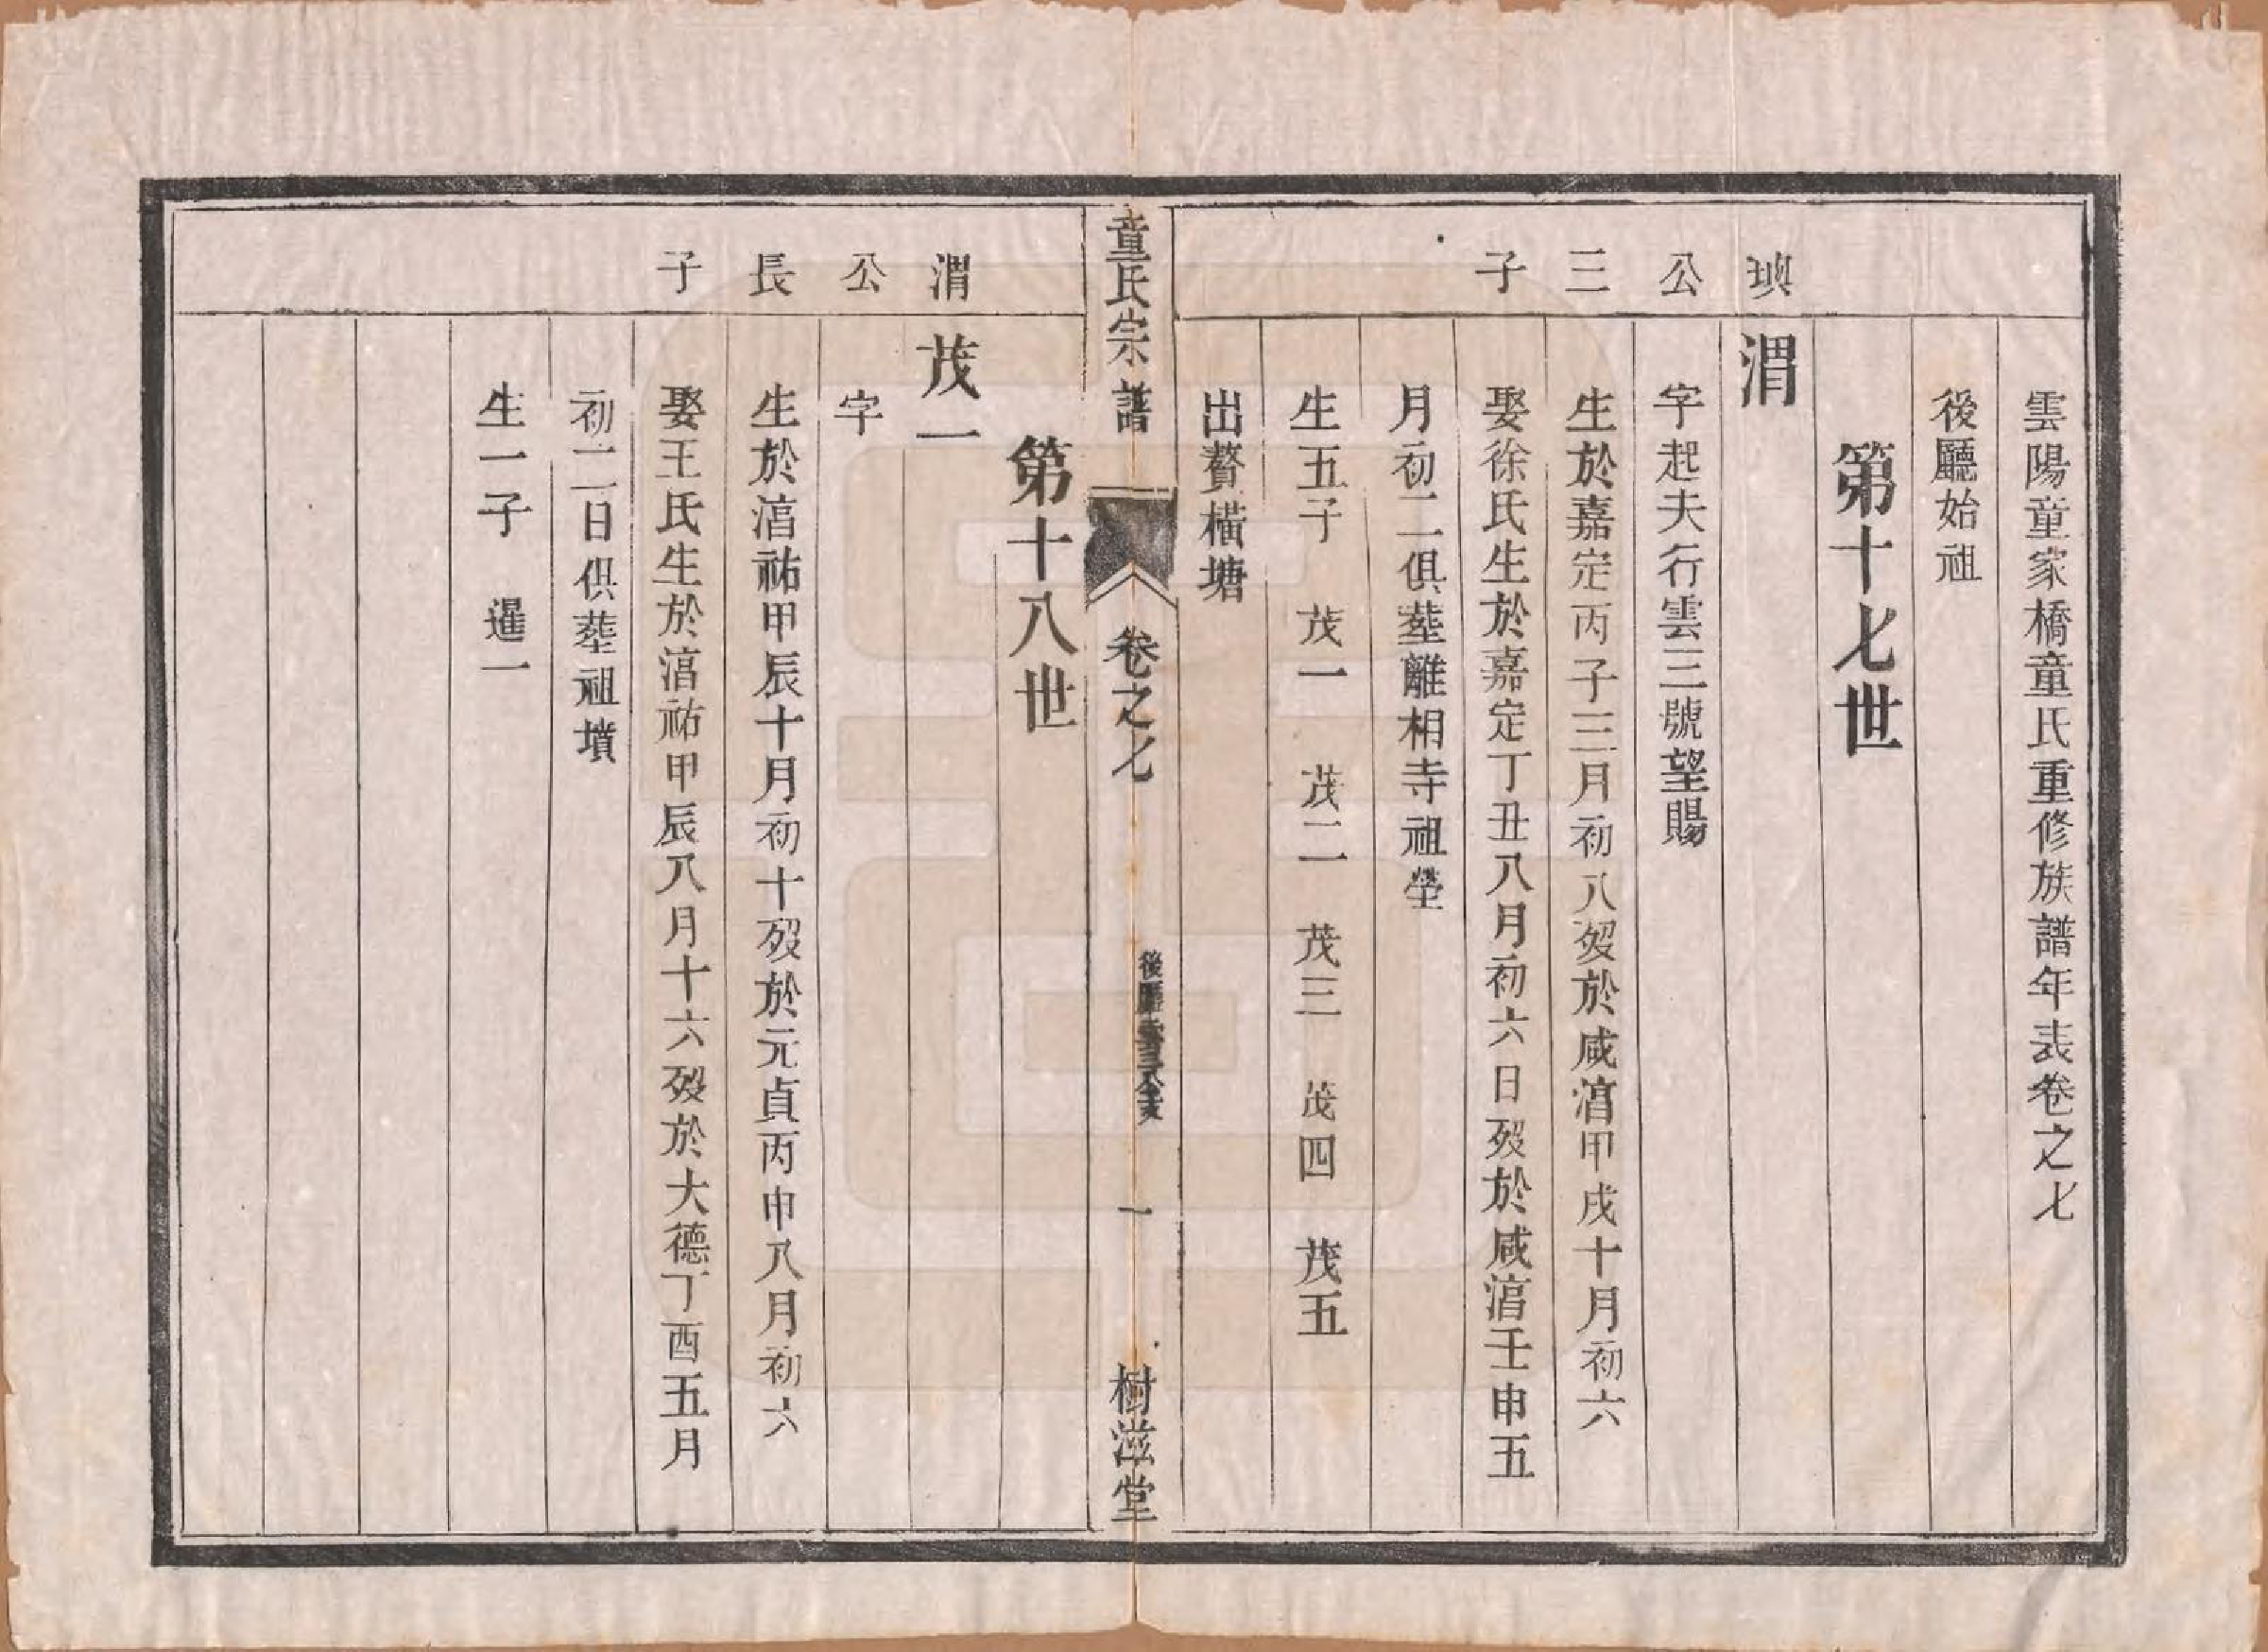 雲陽童家橋童氏重修族譜年表卷之七
後廳始祖
第十七世
公三子
渭
字起夫行雲三號望賜
生於嘉定丙子三月初八歿於咸湻甲戌十月初六
娶徐氏生於嘉定丁丑八月初六日歿於咸湻壬申五
月初二俱塟離相寺祖塋
生五子 茂一 茂二 茂三 茂四 茂五
出贅橫塘
童氏宗譜
卷之七
後廳
一
樹滋堂
第十八世
渭公長子
茂一
字
生於湻祐甲辰十月初十歿於元貞丙申八月初六
娶王氏生於湻祐甲辰八月十六歿於大德丁酉五月
初二日俱塟祖墳
生一子 暹一